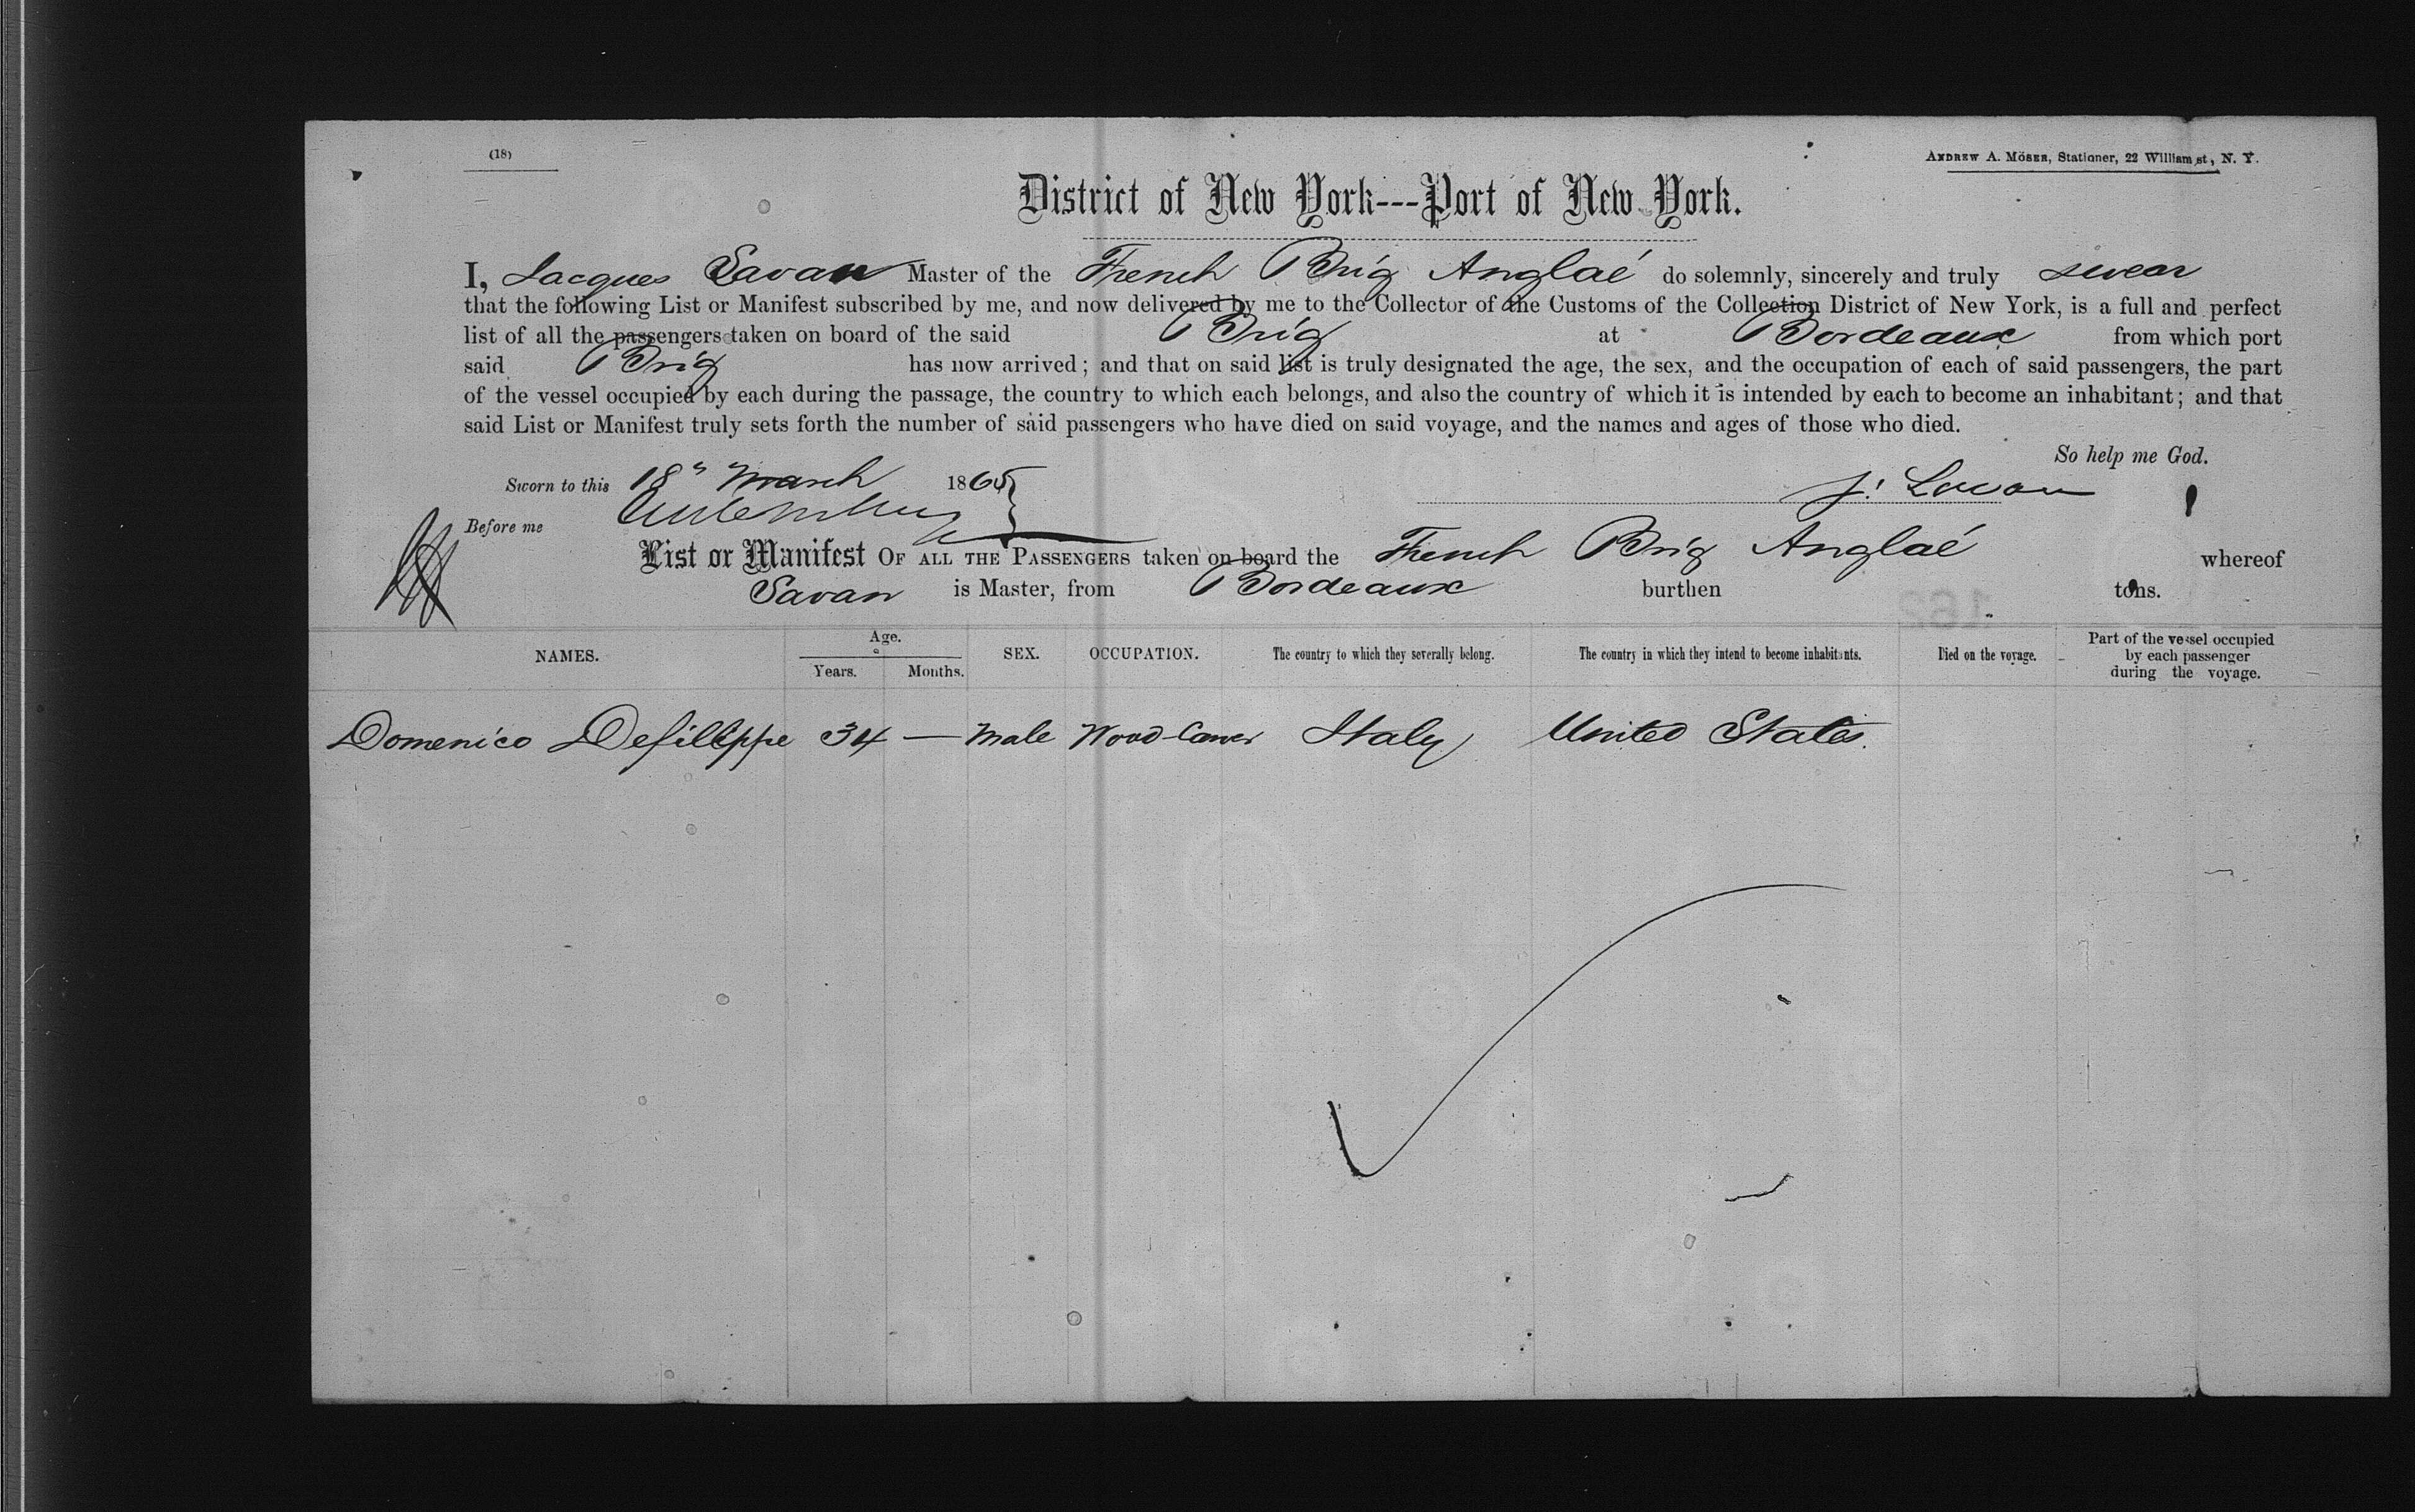 (18)
ANDREW A. MÖSER, Stationer, 22 William st, N. Y.
District of New York---Port of New York.
I, Jacques Savan Master of the French Brig Anglaé do solemnly, sincerely and truly swear
that the following List or Manifest subscribed by me, and now delivered by me to the Collector of the Customs of the Collection District of New York, is a full and perfect
list of all the passengers taken on board of the said Brig at Bordeaux from which port
said Brig has now arrived; and that on said list is truly designated the age, the sex, and the occupation of each of said passengers, the part
of the vessel occupied by each during the passage, the country to which each belongs, and also the country of which it is intended by each to become an inhabitant; and that
said List or Manifest truly sets forth the number of said passengers who have died on said voyage, and the names and ages of those who died.
So help me God.
Sworn to this 18" March 1865
J.
Before me
List or Manifest OF ALL THE PASSENGERS taken on board the French Brig Anglaé whereof
Savan is Master, from Bordeaux burthen tons.
NAMES. Age. Years. Months. SEX. OCCUPATION. The country to which they severally belong. The country in which they intend to become inhabitants. Died on the voyage. Part of the vessel occupied by each passenger during the voyage.
Domenico Defillippe 34 — Male Wood-Carver Italy United States.